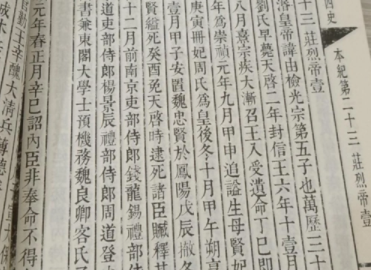 四史　本紀第二十三　莊烈帝壹
十三　莊烈帝壹
落皇帝諱由檢光宗第五子也萬歷三十
劉氏早薨天啓二年封信王六年十壹月
八月熹宗疾大漸召王入受遺命丁巳即
年為崇禎元年九月甲申追謚生母賢妃
庚寅冊妃周氏為皇後冬十月甲午朔享
壹月甲子安置魏忠賢於鳳陽戊辰撤各
賢縊死癸酉免天啓時逮死諸臣贓釋其
十二月前南京吏部侍郎錢龍錫禮部侍
道吏部侍郎楊景辰禮部侍郎周道登
書兼東閣大學士預機務魏良卿客氏子
元年春正月辛巳詔內臣非奉命不得
動王辛醜大清兵